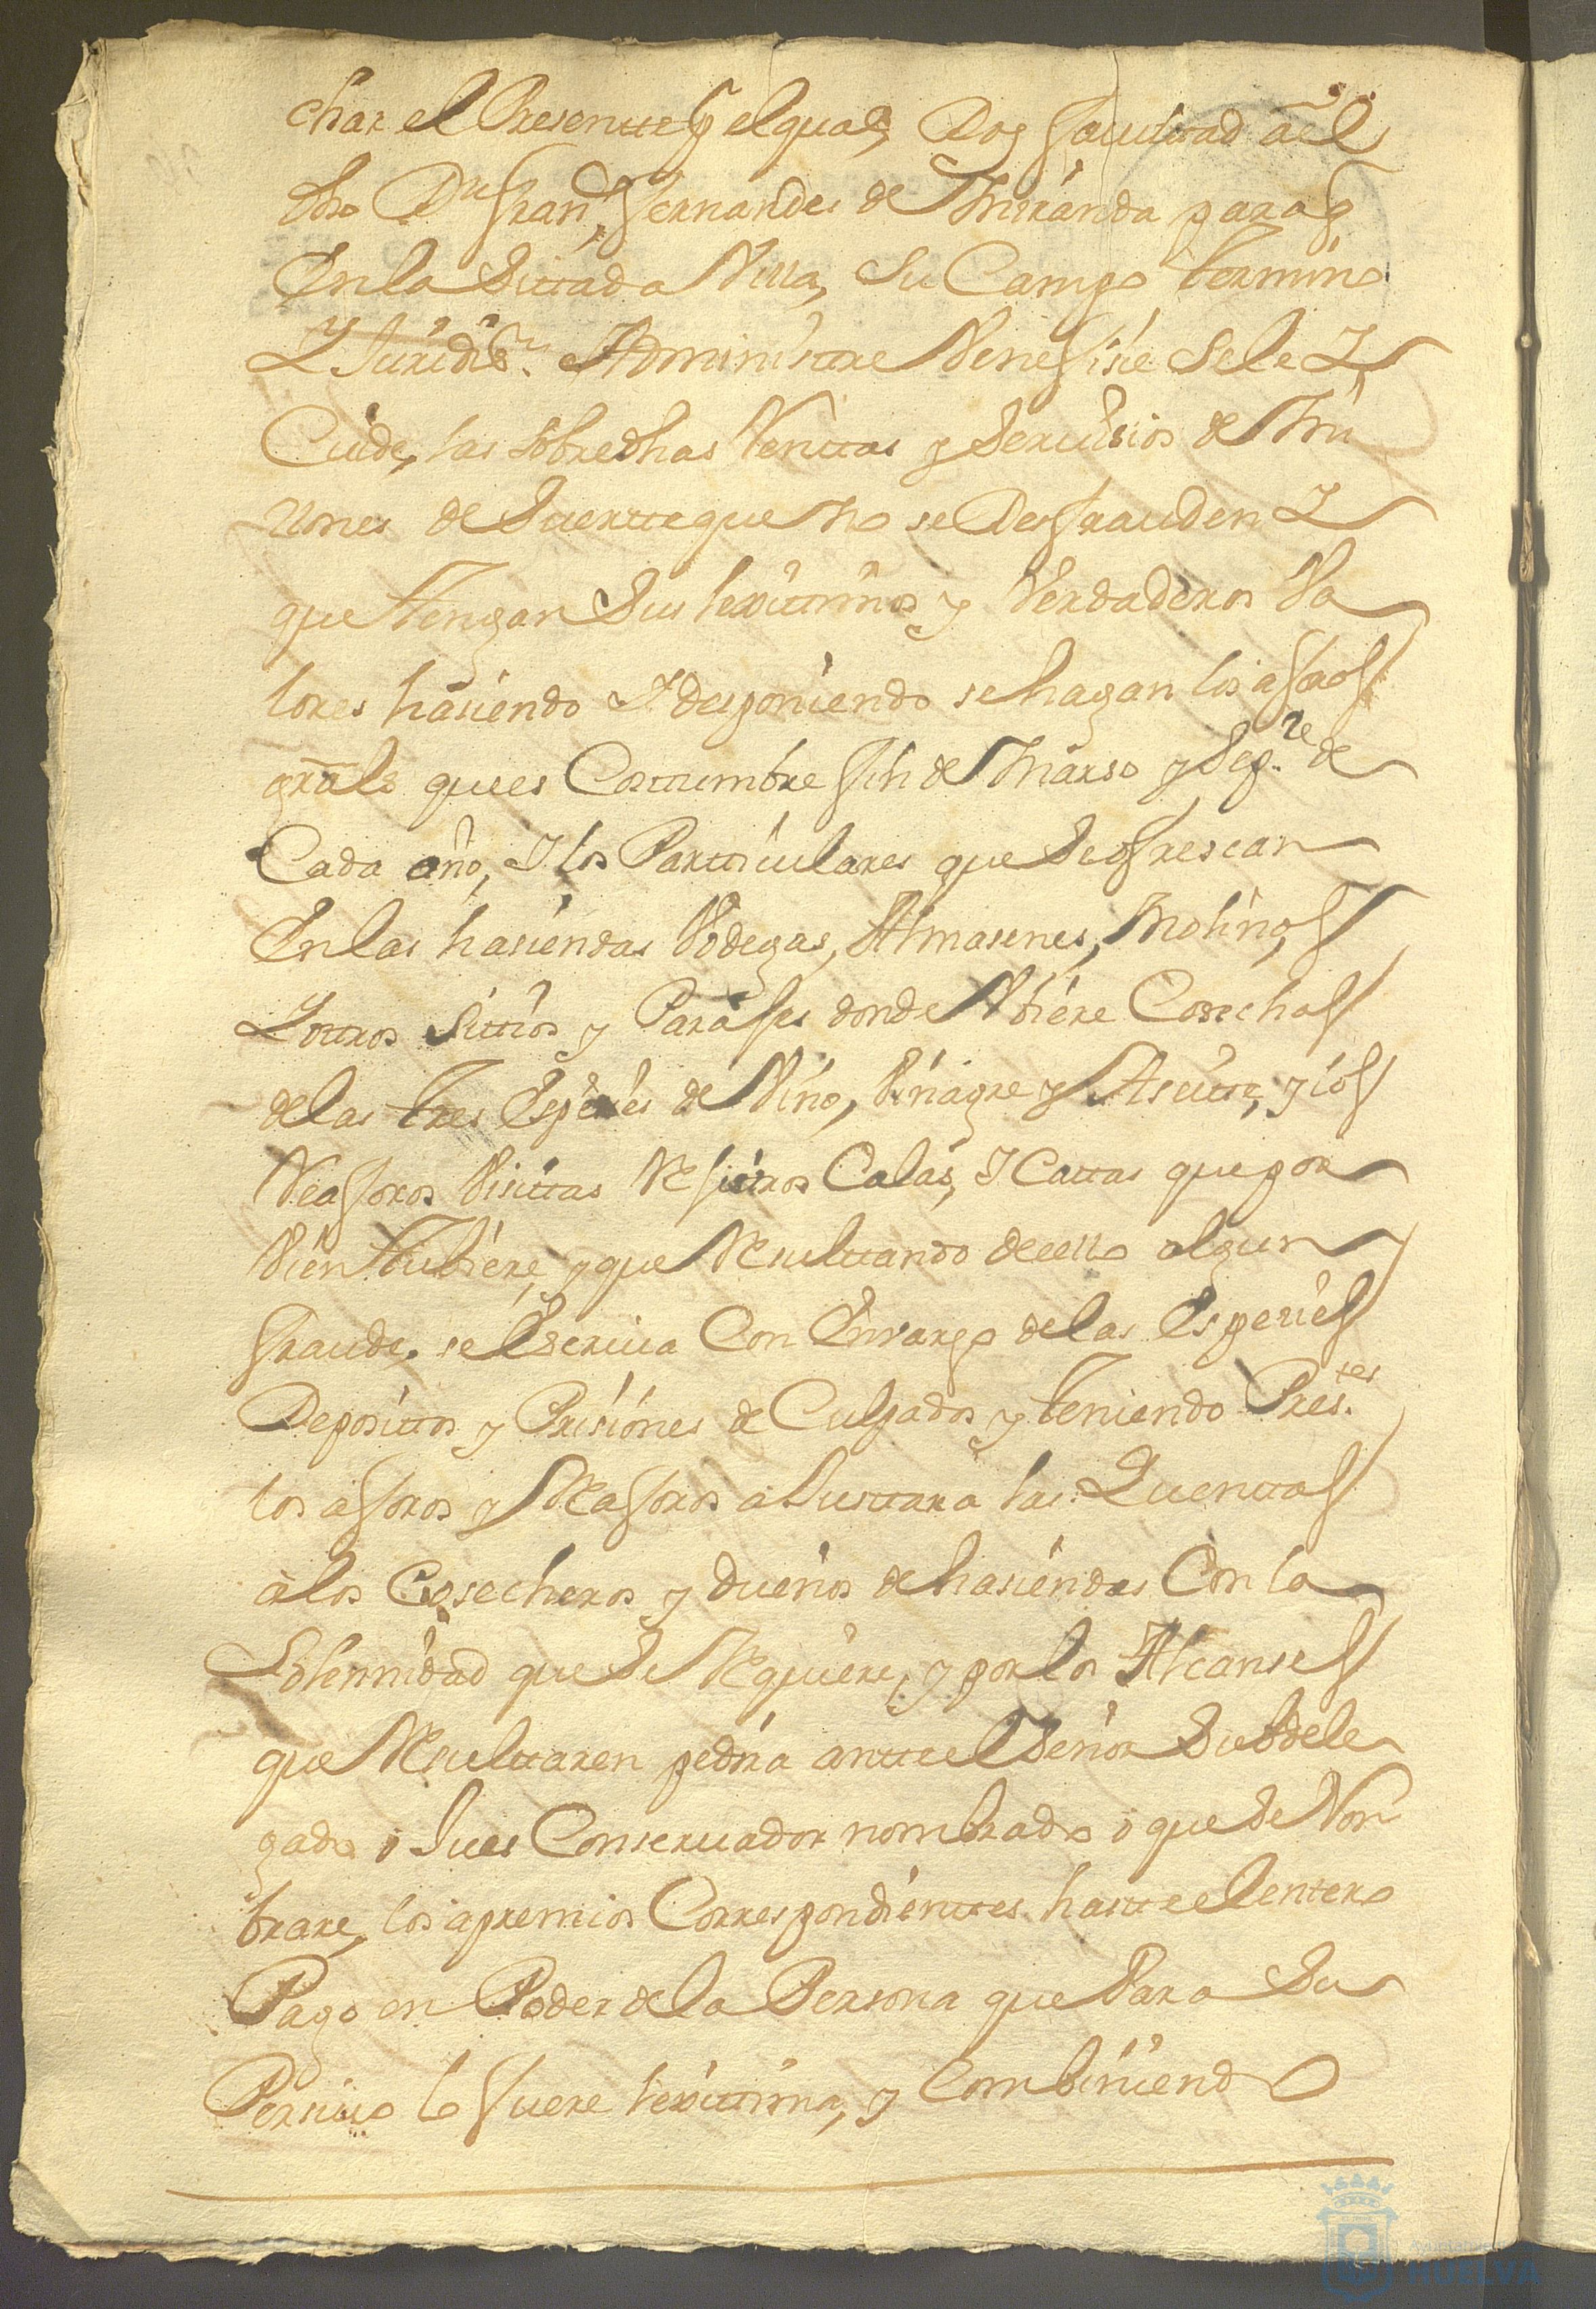 char el Presentte p.r el qual, Doy facultad a el
dho Dn Fran.co Fernandes de Miranda para q
En la Sittada Villa, Su Campo termino
Y Juridi.on Administre Venefisie Sele Y
Cuide, las Sobredhas Renttas y Servisios de Mi
llones de Suertte que no se Defrauden Y
que Tengan Sus lexittimos y Verdaderos Va
lores hasiendo Y desponiendo se hagan los aforos
grales que es Costtumbre fin de Marso y Sep.re de
Cada año, Y los Partticulares que Se ofrescan
En las hasiendas Bodegas, Almasenes, Molinos
Y ottros Sittios y Parajes donde Ubiere Cosechas
de las tres Espesies de Vino, Vinagre y Aseitte, y los
Reaforos Visittas Rejittros Calas, Y Cattas que por
Bien Tubiere, y que Resulttando de ello algun
fraude, se Escriva Con Envargo de las Espesies
Deposittos y Prisiones de Culpados y teniendo Pres.tes
los aforos y Reaforos aJusttara las Quenttas
a los Cosecheros y dueños de hasiendas Con la
Solemnidad que Se Requiere, y por los Alcanses
que Resulttaren pedira antte el Señor Subdele
gado o Jues Conservador nombrado o que Se Nom
brare, los apremios Correspondienttes hastta el entero
Pago en Poder de la Persona que Para Su
Persivo lo fuere lexittima, y Combiniendo
Ayuntamiento
HUELVA